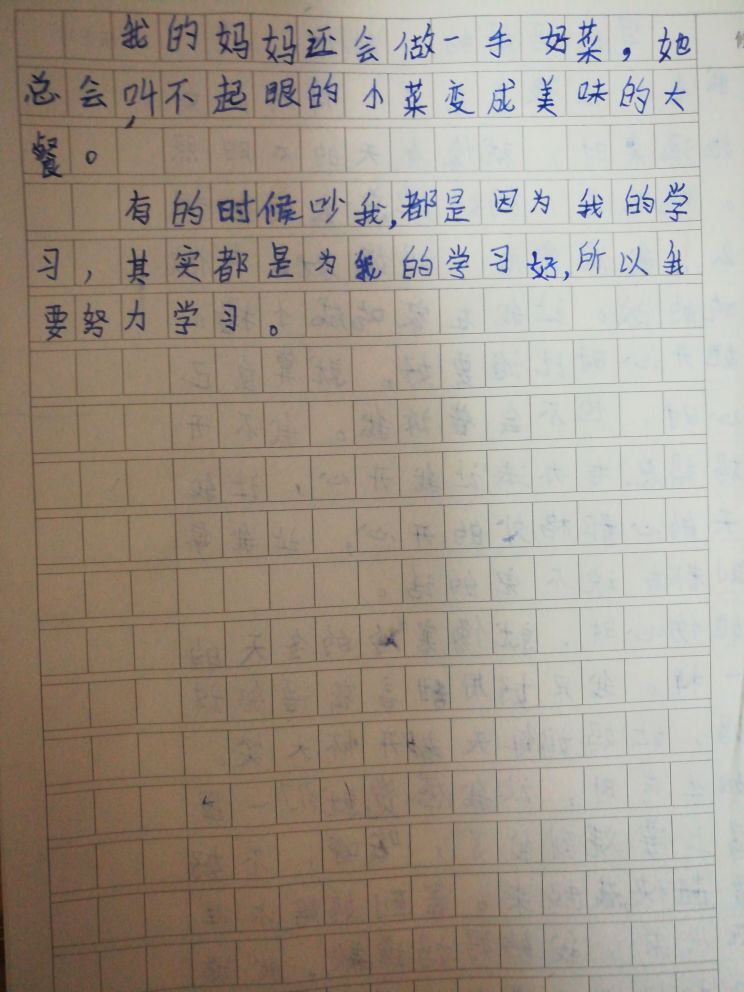 我的妈妈还会做一手好菜，她
总会叫不起眼的小菜变成美味的大
餐。
有的时候吵我，都是因为我的学
习，其实都是为我的学习好，所以我
要努力学习。